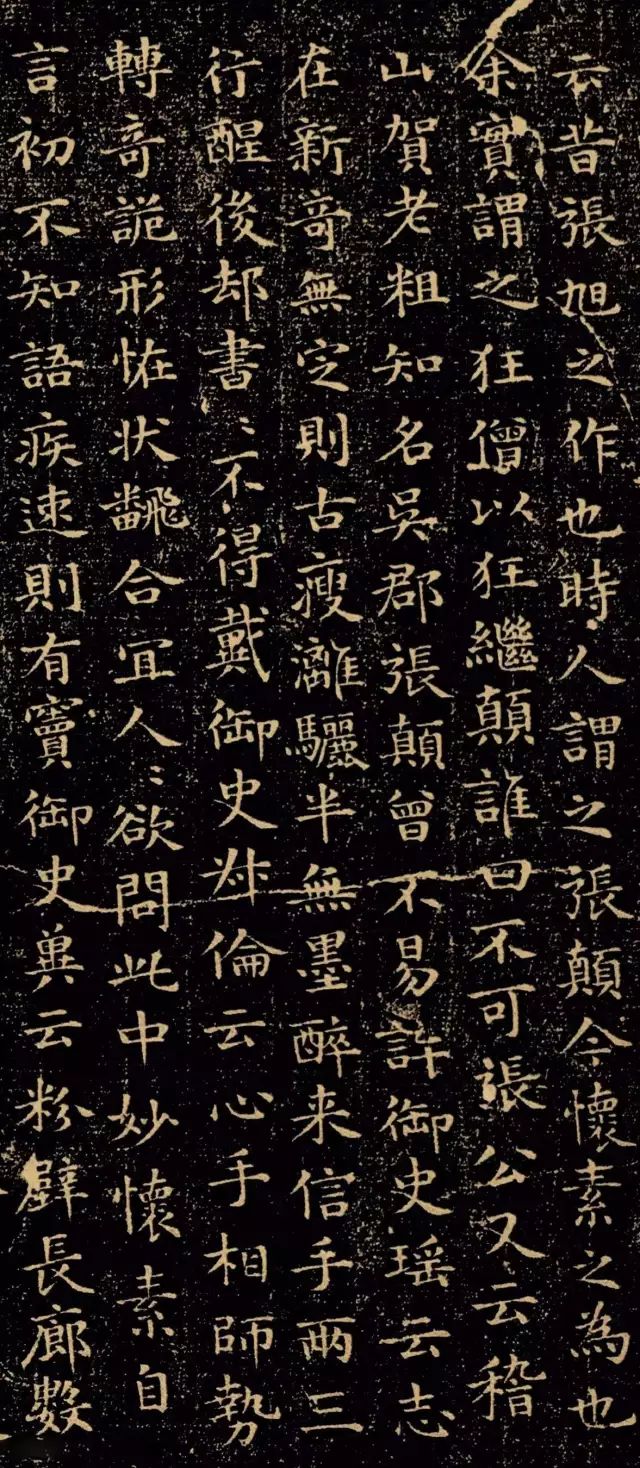 云昔張旭之作也時人謂之張顛今懷素之為也
余實謂之狂僧以狂繼顛誰曰不可張公又云稽
山賀老粗知名吳郡張顛曾不易許御史瑶云志
在新奇無定則古瘦漓驪半無墨醉来信手兩三
行醒後却書〻不得戴御史叔倫云心手相師勢
轉奇詭形恠状翻合宜人〻欲問此中妙懷素自
言初不知語疾速則有竇御史兾云粉壁長廊數